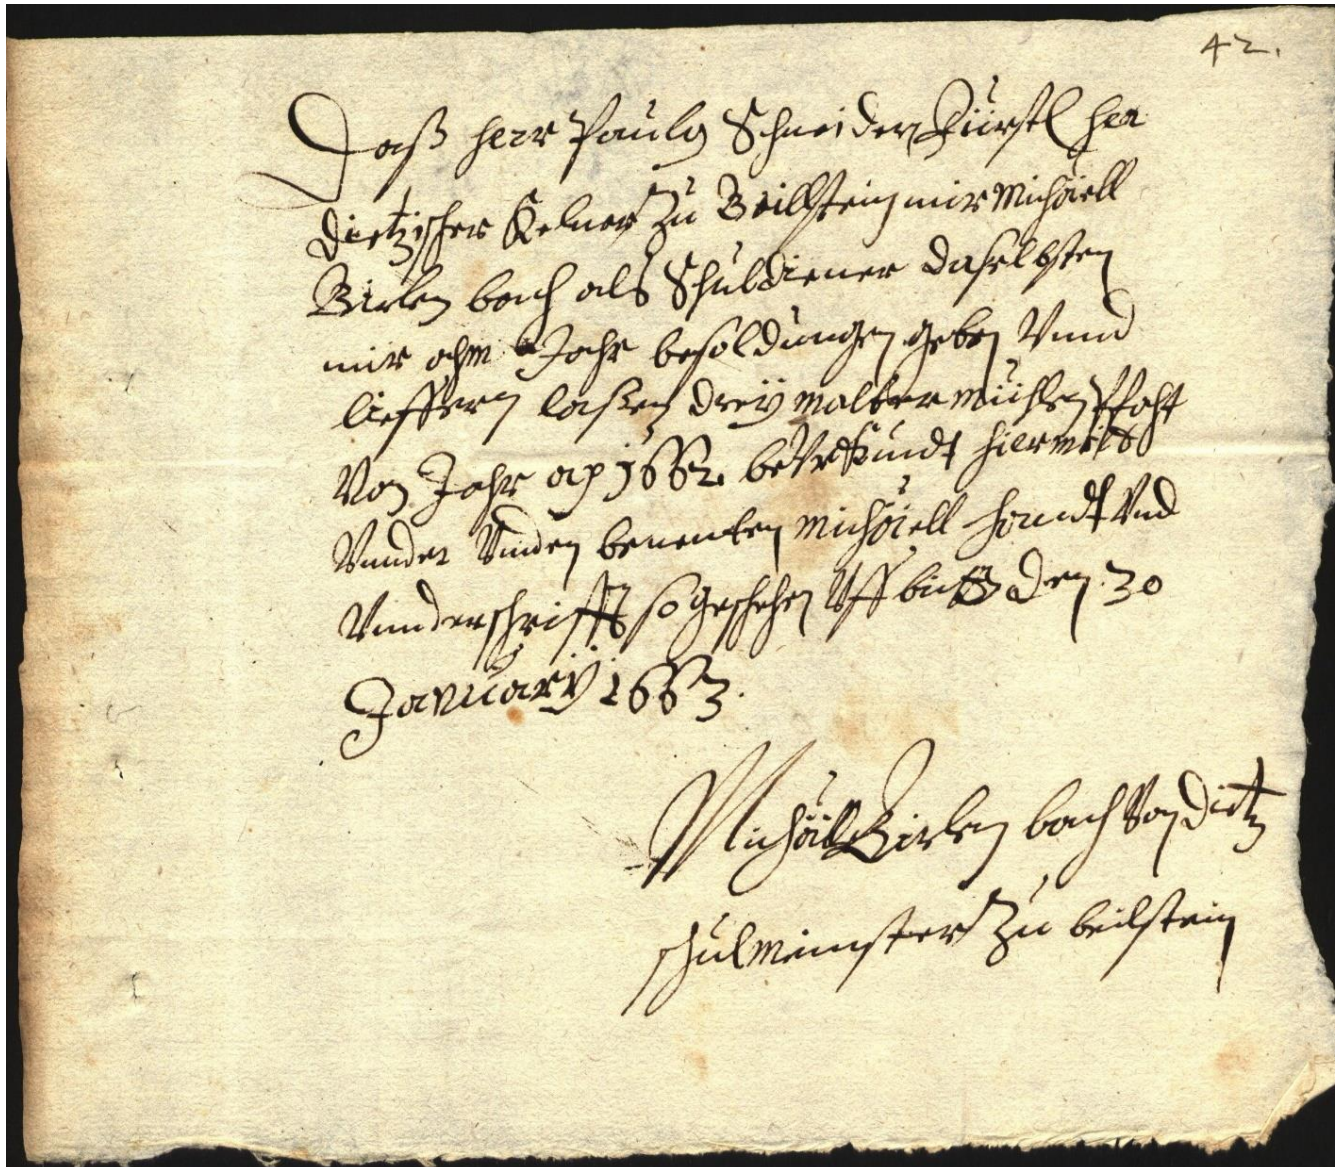 42.
Daß herr Paulus Schneider Fürstl ha
dietzischer Kelner zu Beillstein mir Michäell
Birlen bach als Schuldiener daselbsten
mir ahm Jahr besoldungen geben Vnnd
lieffern laßen dreÿ malter mühlen Pfaht
Von Jahr ao 1662. beVrkundt hiermitt
Vnnder Vnden benenten Michäell handt Vnd
Vnnderschrifft so geschehen Vff den 30
Januarÿ 1663.
Michäel Birlen bach Von Dietz
schulmeinster zu beilstein